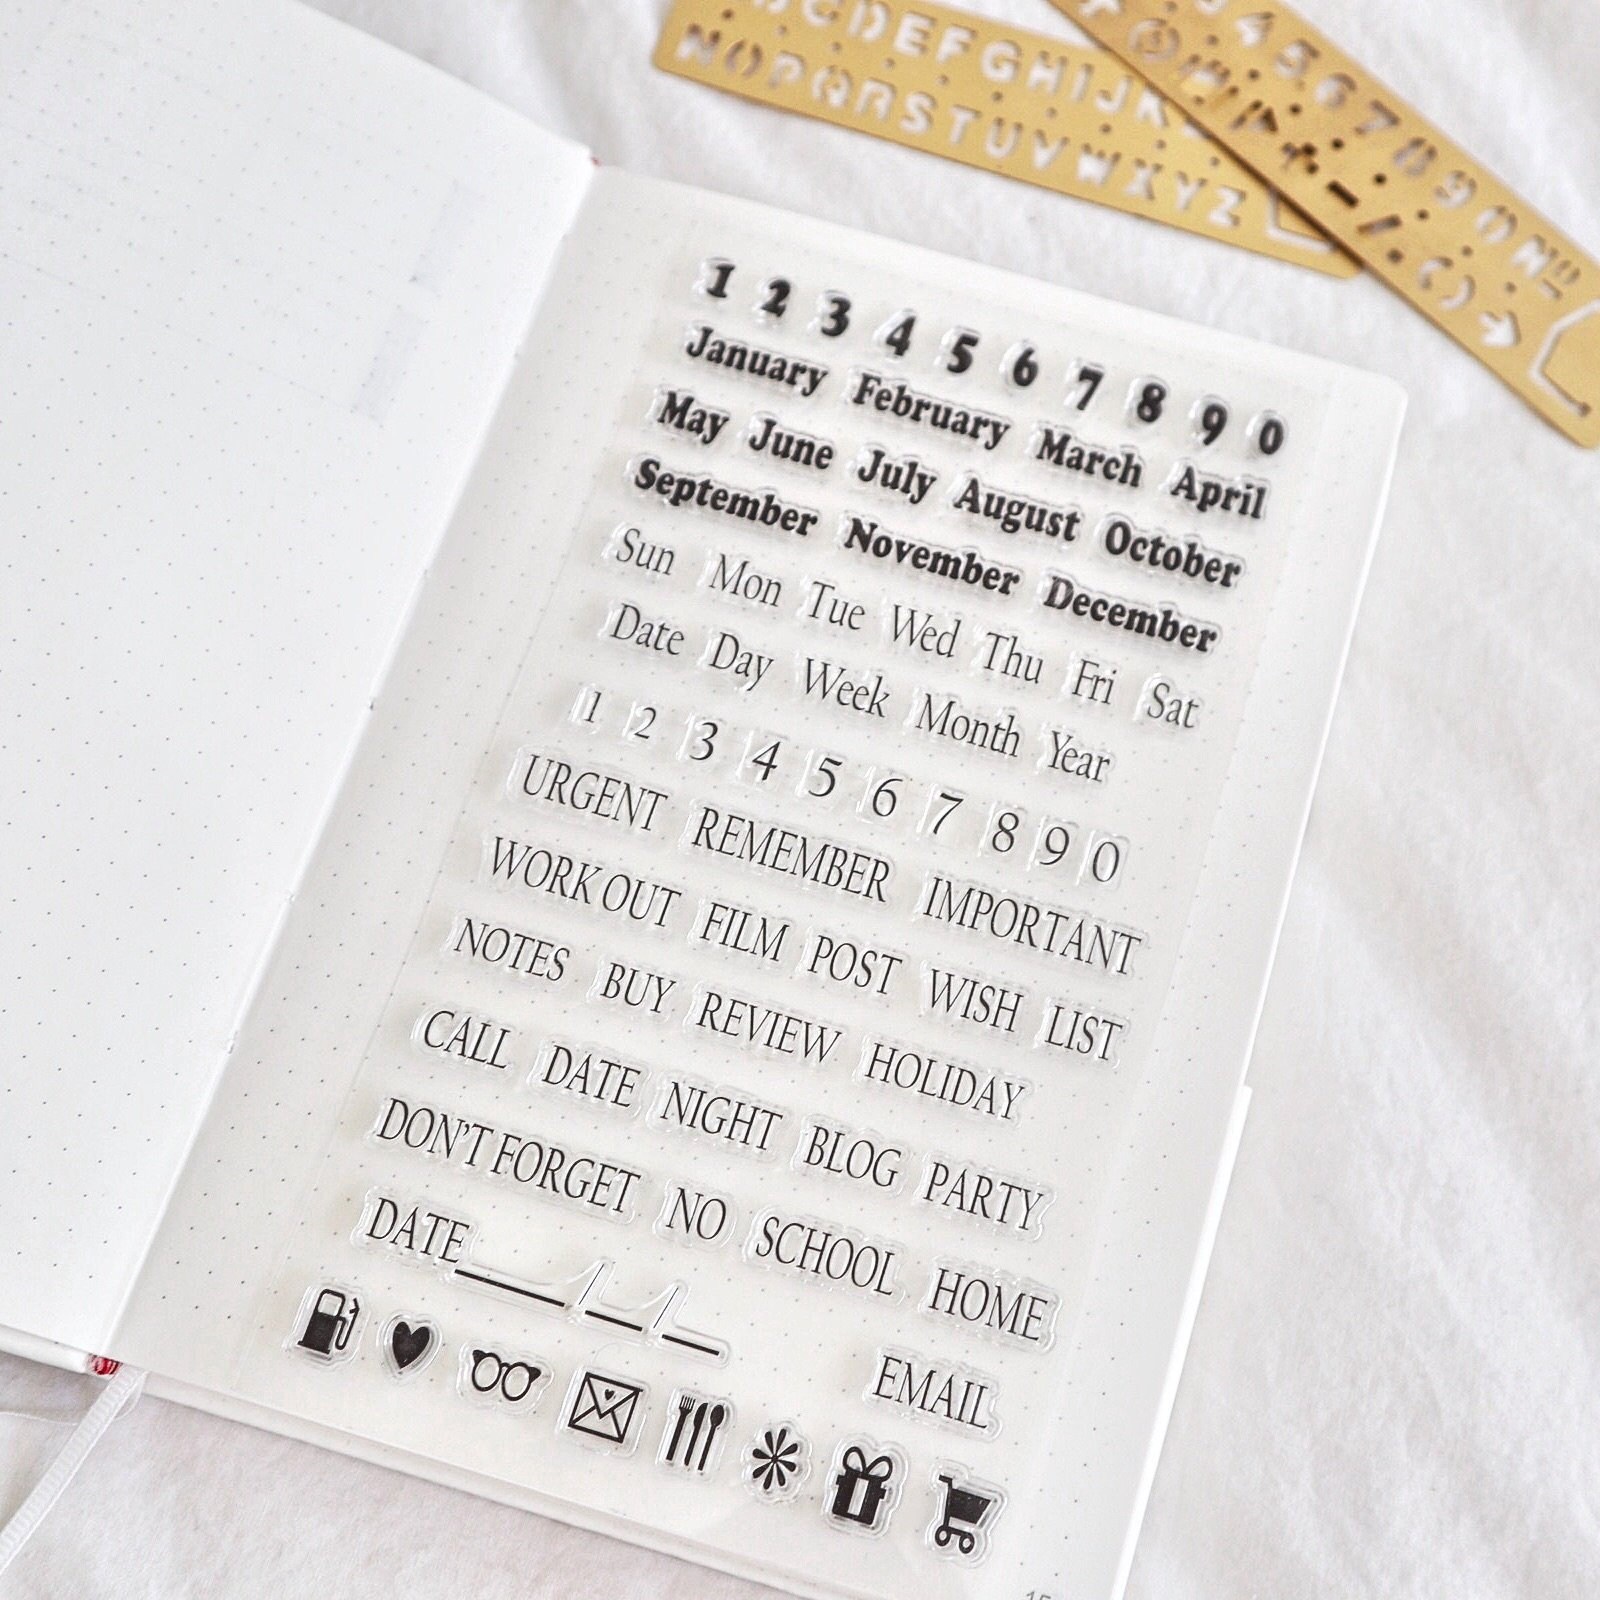 BCDEFGHIJK
NOPQRSTUVWXYZ
4567890 Nº
1 2 3 4 5 6 7 8 9 0
January February March April
May June July August October
September November December
Sun Mon Tue Wed Thu Fri Sat
Date Day Week Month Year
1 2 3 4 5 6 7 8 9 0
URGENT REMEMBER IMPORTANT
WORK OUT FILM POST WISH LIST
NOTES BUY REVIEW HOLIDAY
CALL DATE NIGHT BLOG PARTY
DON'T FORGET NO SCHOOL HOME
DATE __/__/__
EMAIL